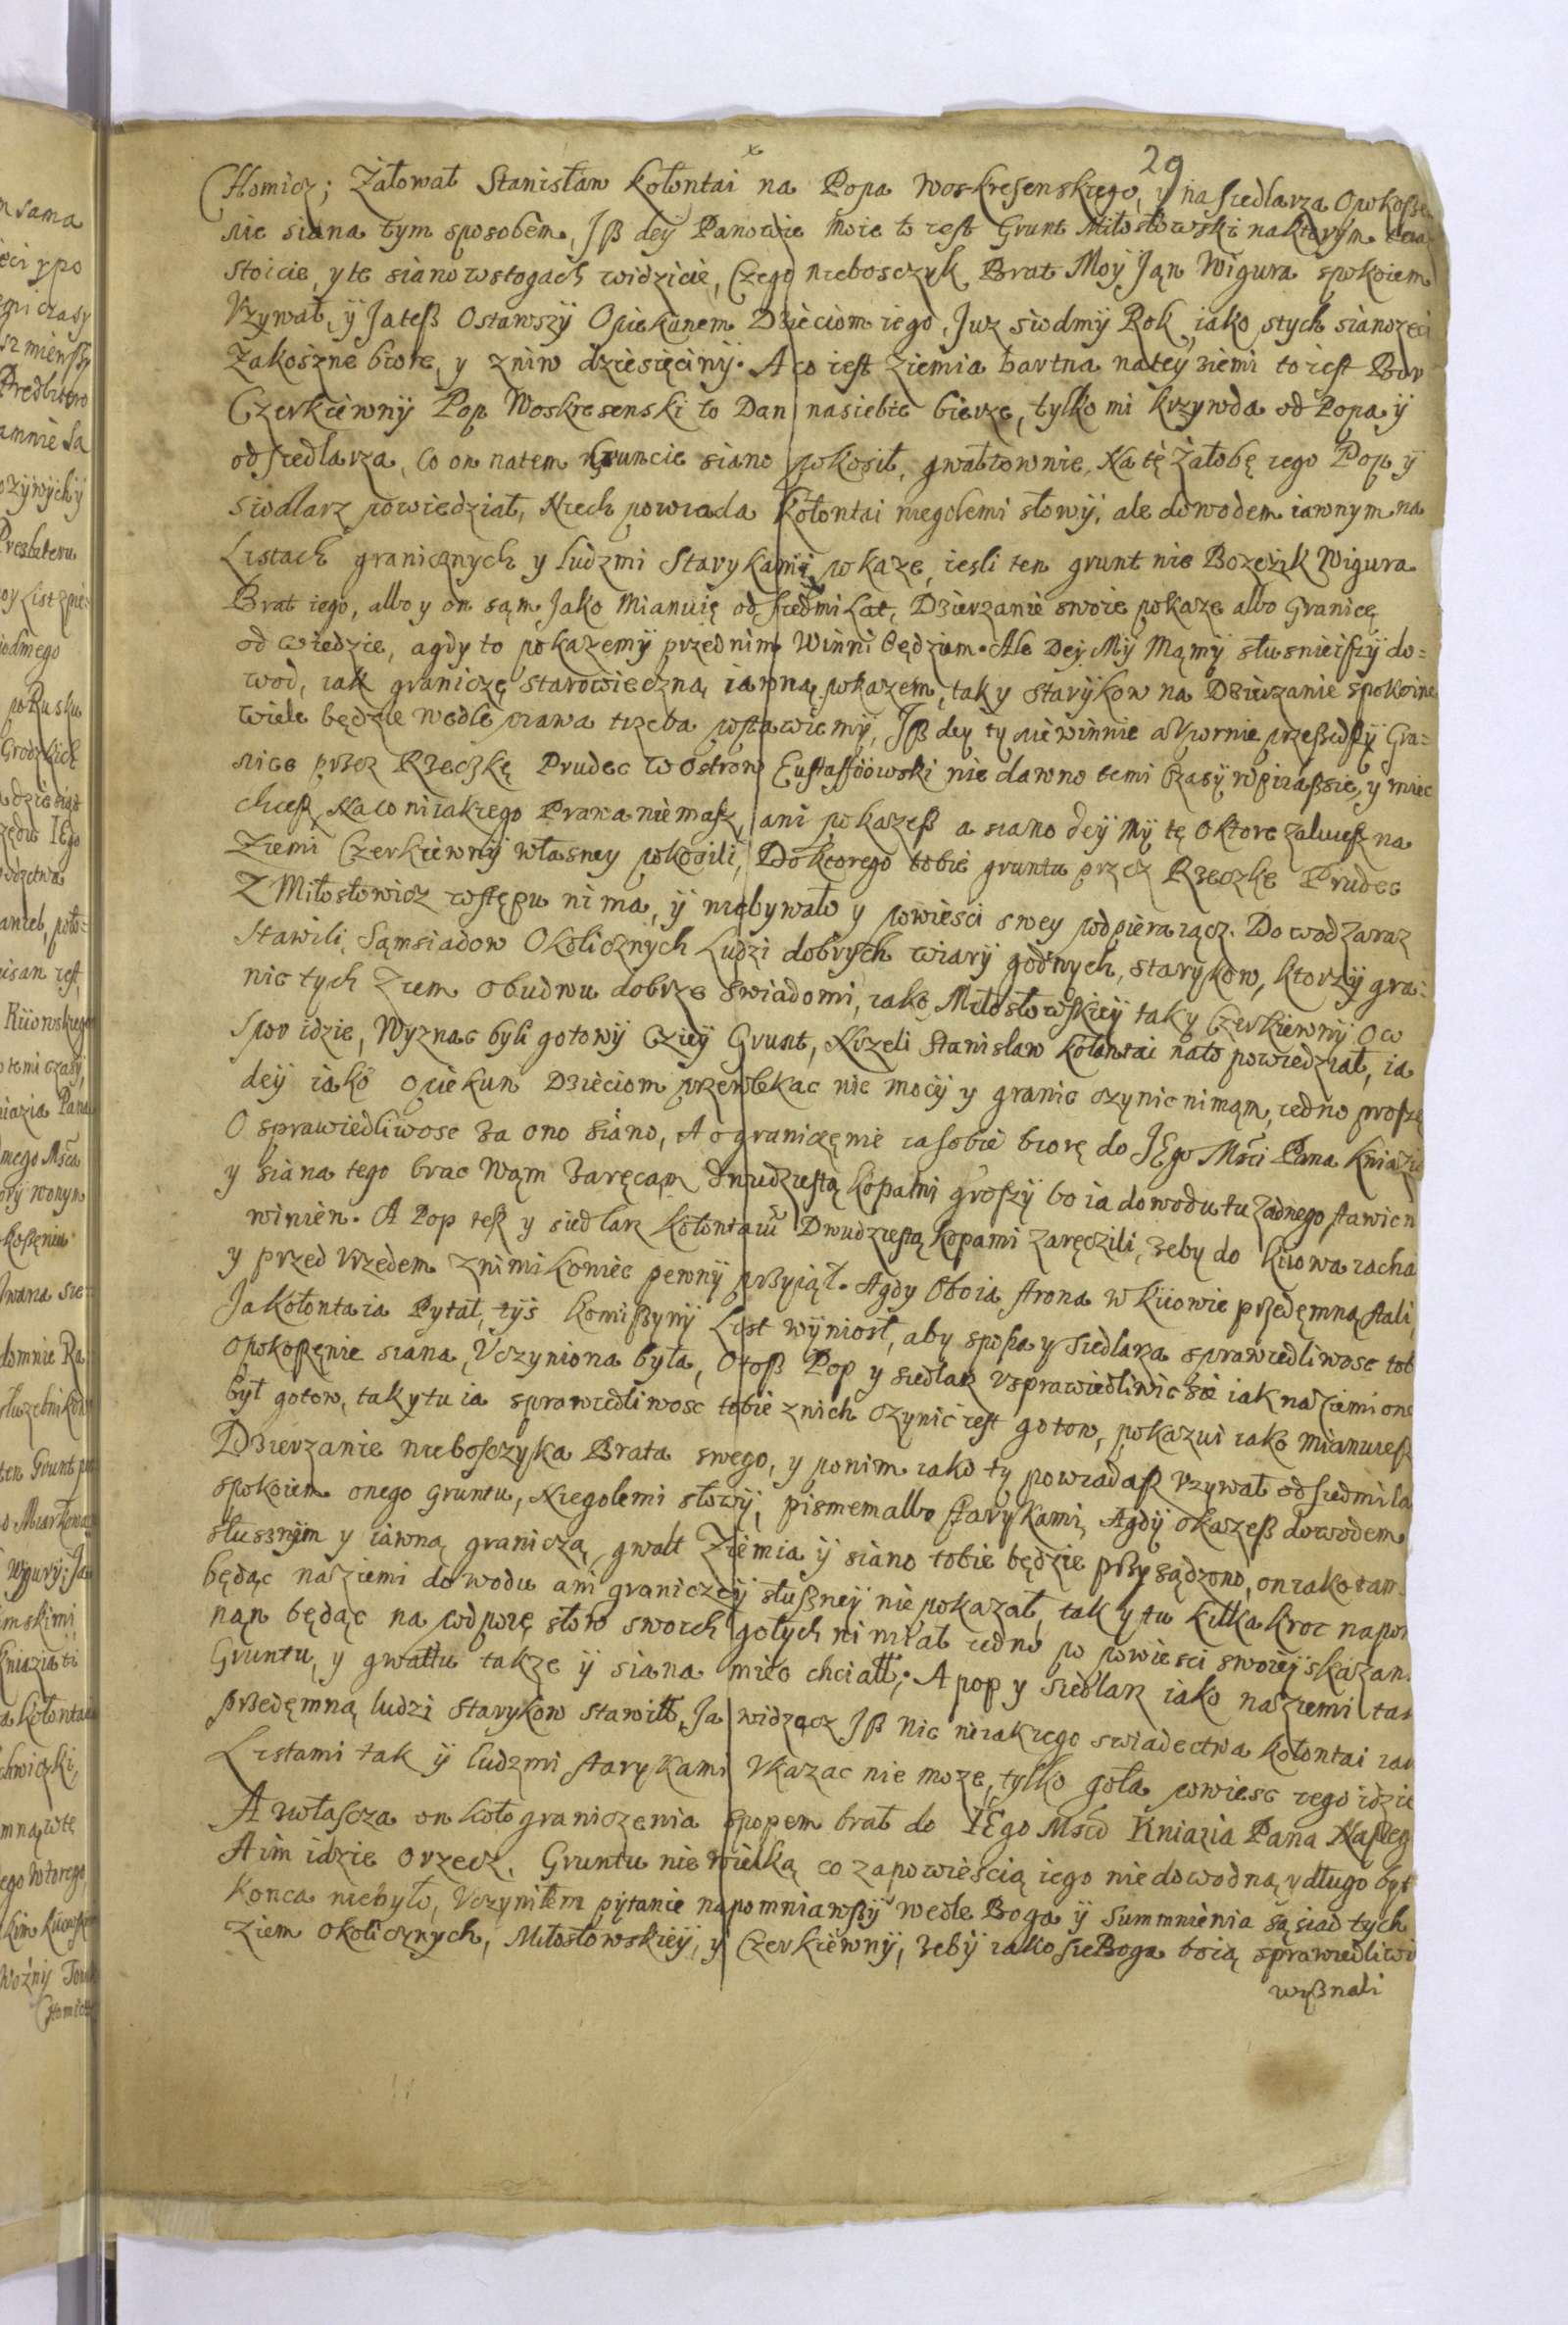 29
Chomicz; Żałował Stanisław Kołontai na Popa Woskresenskiego, y na siedlarza o pokosze
nie siana tym sposobem, Jß dey Panowie moie to iest Grunt Miłosłowski na ktorym teraz
stoicie, y te siano w stogach widzicie, Czego niebosczyk Brat Moÿ Jąn Wigura spokoiem
Vzywał, ÿ Ja teß Ostawszÿ Opiekunem Dzieciom iego, Juz siodmÿ Rok, iako s tych sianozęci
Zakoszne biorę, y zniw dziesięcinÿ. A co iest Ziemia bartna na teÿ ziemi to iest Bor
Czerkiewnÿ Pop Woskresenski to Dan na siebie bierze, tylko mi krzywda od Popa ÿ
od siedlarza, co on na tem gruncie siano pokosił, gwałtownie, Na tę Żałobę iego Pop ÿ
siodlarz powiedział, Niech powiada Kołontai nie gołemi słowÿ, ale dowodem iawnym na
Listach granicznych y ludzmi Starykami pokaze, iesli ten grunt nie Bozczik Wigura
Brat iego, albo y on sąm Jako Mianuię od siedmi Lat, Dzierzanie swoie pokaze albo Granicę
od wiedzie, a gdy to pokazemÿ przed nim Winni będziem. Ale Deÿ Mÿ Mąmÿ słusnieiszÿ do=
wod, iak graniczę starowieczną iawną pokazem, tak y starÿkow na Dzierzanie spokoine
wiele będzie wedle prawa trzeba postawiemÿ, Jß dey ty niewinnie a Vpornie przeßedßÿ Gra=
nice przez Rzeczkę Prudec w Ostrow Eustaffiiowski nie dawno temi czasÿ wpiraßsie, y miec
chceß, Na co niiakiego Prawa nie masz, ani pokazeß a siano deÿ Mÿ tę o ktore zaluieß na
Ziemi Czerkiewnÿ własney pokosili, Do ktorego tobie gruntu przez Rzeczkę Prudec
Z Miłosłowicz wstępu ni ma, ÿ nie bywało y powiesci swey podpieraiącz. Dowod zaraz
stawili, Sąmsiadow Okolicznych Ludzi dobrÿch wiarÿ godnych, starykow, ktorzÿ gra=
nic tych Ziem obudwu dobrze swiadomi, iako Miłosłowskieÿ tak y Czerkiewnÿ o co
spor idzie, Wyznac byli gotowÿ Czieÿ Grunt, Nizeli Stanislaw Kołontai na to powiedział, ia
deÿ iako opiekun Dzieciom przewlekac nie mocÿ y granic czynic ni mąm, iedno proszę
O sprawiedliwosc za ono siano, A o graniczęnie ia sobie biorę do JEgo Mści Pana Kniazia
y siana tego brac Wąm zaręcąm dwudziestą kopami groszÿ bo ia dowodu tu zadnego stawicn
winien. A Pop teß y siedlarz Kołontaiu Dwudziestą kopami zaręczili, zeby do Kiiowa iacha
y przed Vrzędem z nimi koniec pewnÿ przyiął. A gdy Oboia strona w Kiiowie przedemną stali,
Ja Kołontaia Pytał, tÿs komißynÿ List wÿniosł, aby s popa y siedlarza sprawiedliwosc tob
o pokoßęnie siana, Vczyniona była, Otoß Pop y siedlarz vsprawiedliwic sie iak na Ziemi one
był gotow, tak y tu ia sprawiedliwosc tobie z nich czynic iest gotow, pokazui iako mianuieß
Dzierzanie nieboszczyka Brata swego, y po nim iako ty powiadaß vzywał od siedmi la
spokoiem onego gruntu, Nie golemi słowÿ, pismem albo starykami, A gdÿ okazeß dowodem
słusznÿm y iawną graniczą, gwałt Ziemia ÿ siano tobie będzie przysądzono, on iako tam
będąc na ziemi dowodu ani graniczeÿ słußneÿ nie pokazał, tak y tu kilka kroc napom
nąn będąc na podporę słow swoich gołych ni miał iedno po powiesci swoieÿ skazan
Gruntu, y gwałtu takze ÿ siana miec chciałł; A pop y siedlarz iako na ziemi tam
przedęmną ludzi starykow stawiłł, Ja widzącz Jß nic niiakiego swiadectwa Kołontai iak
Listami tak ÿ ludzmi starykami Vkazac nie moze, tylko goła powiesc iego idzie
A zwłascza on koło graniczenia s popem brał do JEgo Mści Kniazia Pana Naßeg
A im idzie o rzecz, Gruntu nie wielką co za powiescią iego nie dowodną y długo był
Konca niebyło, Vczyniłem pÿtanie napomniawßÿ wedle Boga ÿ Summnienia sąsiad tych
Ziem okolicznych, Miłosłowskieÿ, y Czerkiewnÿ, zebÿ iako sie Boga boią sprawiedliwi
wyßnali